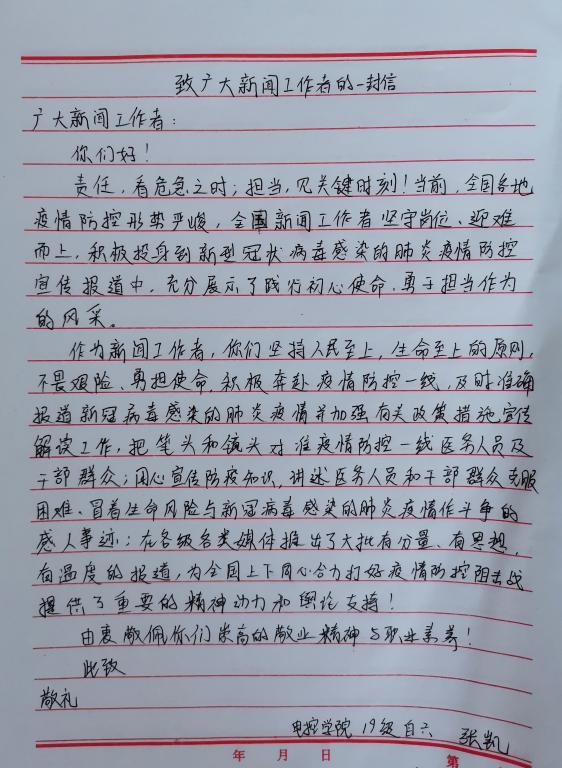 致广大新闻工作者的一封信
广大新闻工作者：
你们好！
责任，看危急之时；担当，见关键时刻！当前，全国各地
疫情防控形势严峻，全国新闻工作者坚守岗位、迎难
而上，积极投身到新型冠状病毒感染的肺炎疫情防控
宣传报道中，充分展示了践行初心使命、勇于担当作为
的风采。
作为新闻工作者，你们坚持人民至上，生命至上的原则，
不畏艰险、勇担使命，积极奔赴疫情防控一线，及时准确
报道新冠病毒感染的肺炎疫情并加强有关政策措施宣传
解读工作，把笔头和镜头对准疫情防控一线医务人员及
干部群众；用心宣传防疫知识，讲述医务人员和干部群众克服
困难、冒着生命风险与新冠病毒感染的肺炎疫情作斗争的
感人事迹；在各级各类媒体推出了大批有分量、有思想、
有温度的报道，为全国上下同心合力打好疫情防控阻击战
提供了重要的精神动力和舆论支持！
由衷敬佩你们崇高的敬业精神与职业素养！
此致
敬礼
电控学院 19级自六 张凯
年 月 日 第